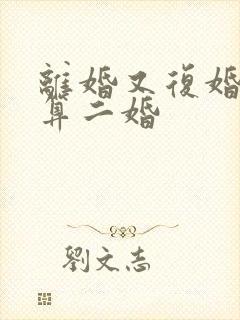 離婚又復婚
算二婚
劉文志